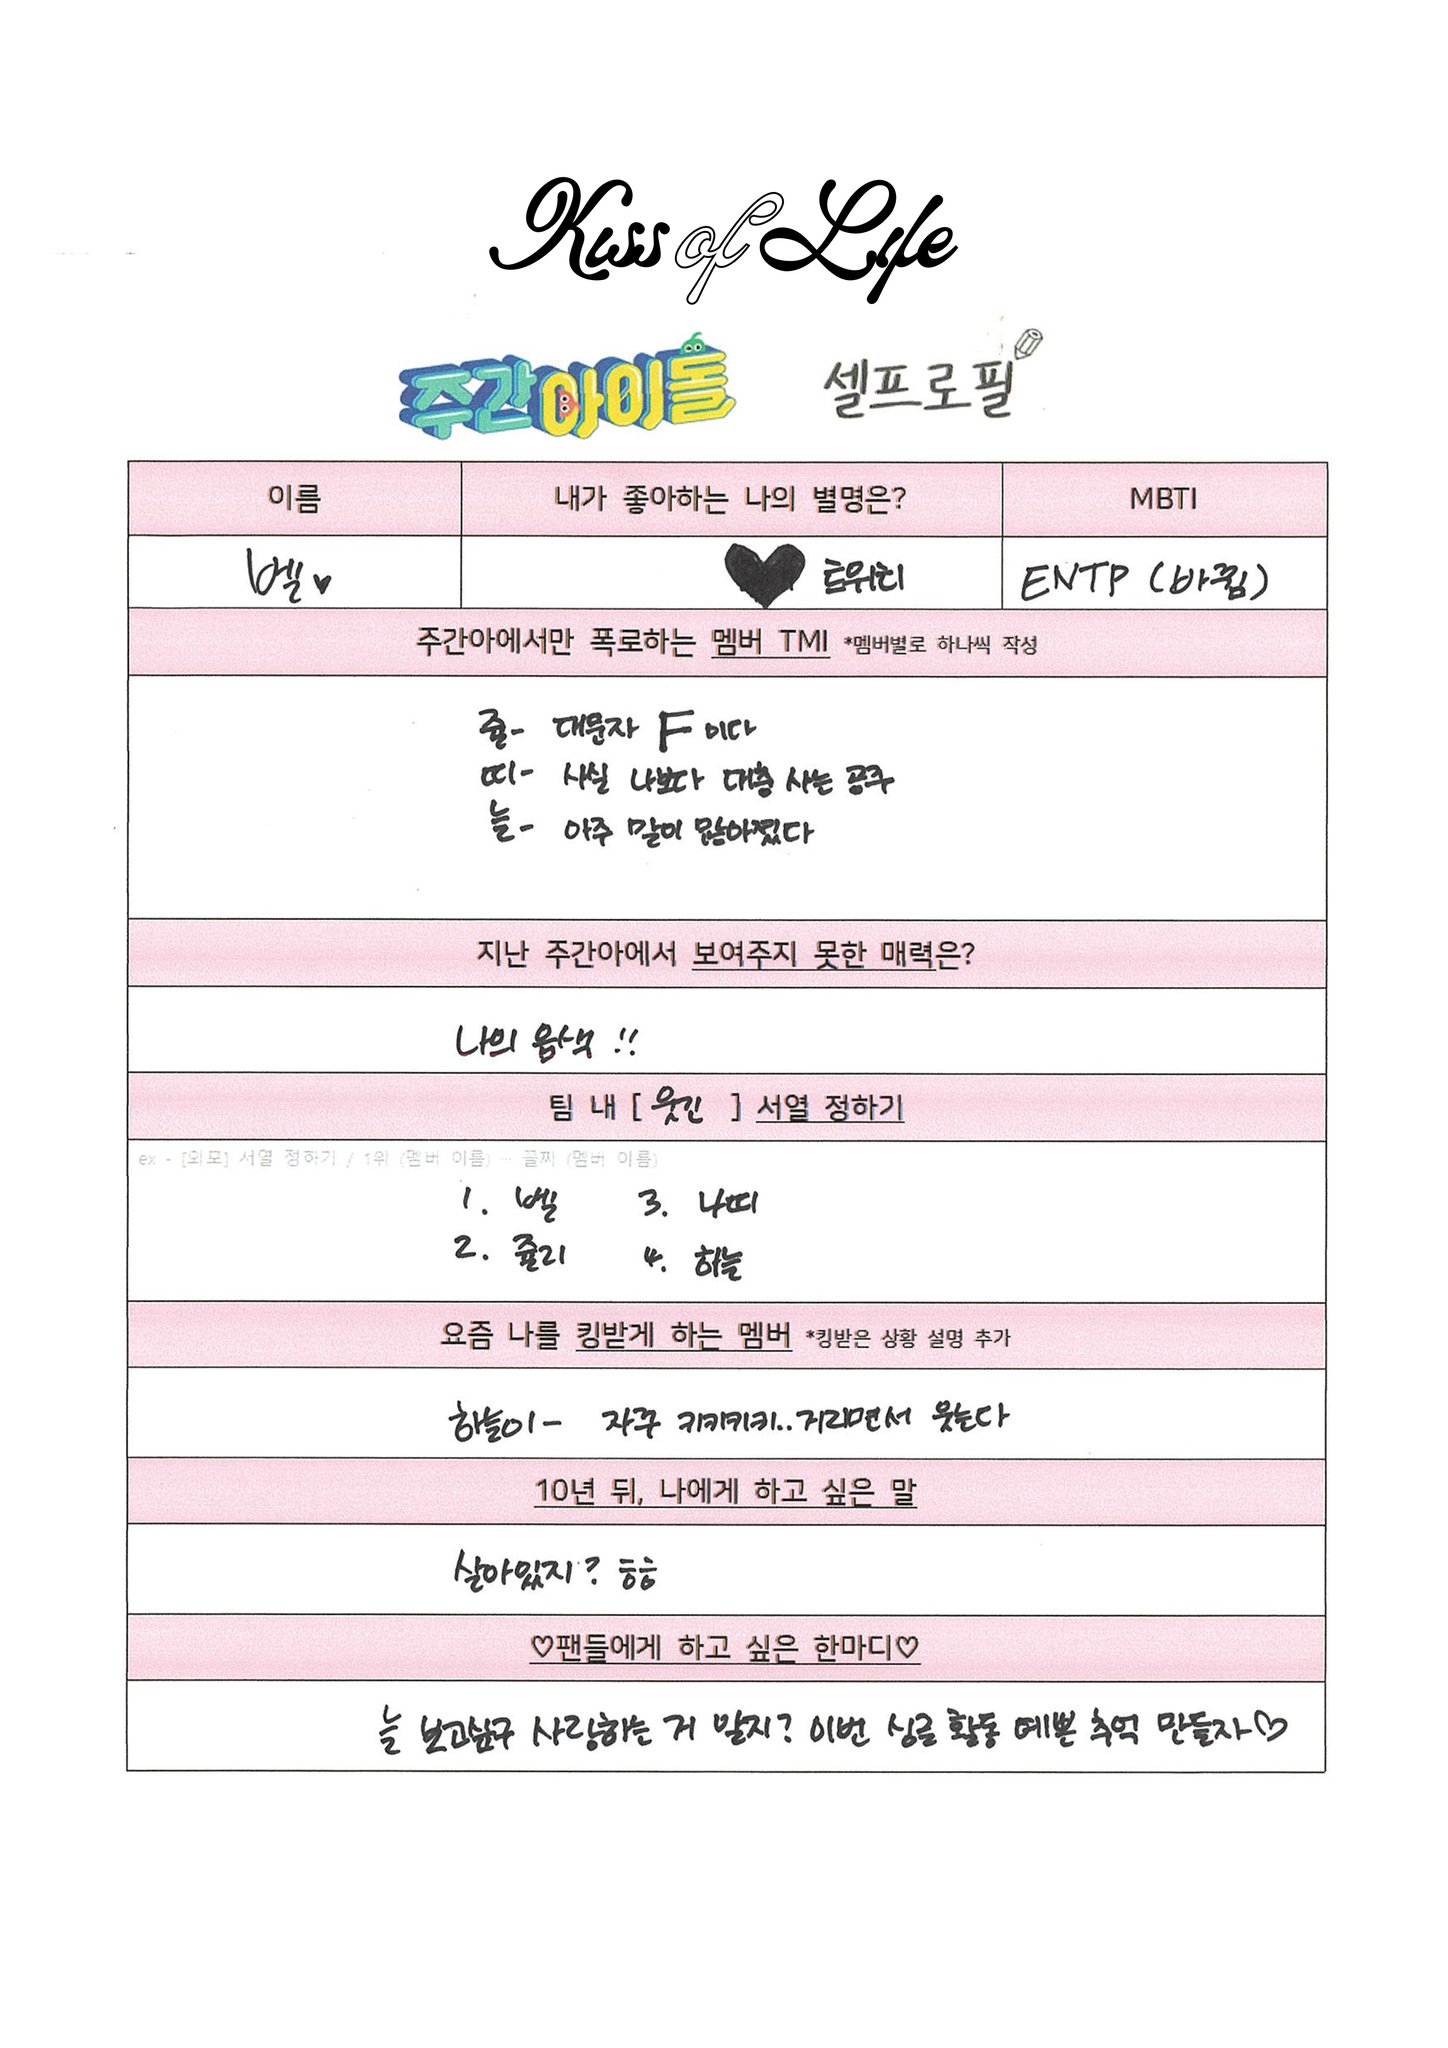 Kiss of Life
주간아이돌 셀프로필
이름 내가 좋아하는 나의 별명은? MBTI
벨♥ ♥ 트위티 ENTP (바뀜)
주간아에서만 폭로하는 멤버 TMI *멤버별로 하나씩 작성
쥴- 대문자 F이다
띠- 사실 나보다 대충 사는 공주
늘- 아주 말이 많아졌다
지난 주간아에서 보여주지 못한 매력은?
나의 음색 !!
팀 내 [ 웃긴 ] 서열 정하기
ex - [외모] 서열 정하기 / 1위 (멤버 이름) ··· 꼴찌 (멤버 이름)
1. 벨 3. 나띠
2. 쥴리 4. 하늘
요즘 나를 킹받게 하는 멤버 *킹받은 상황 설명 추가
하늘이- 자꾸 키키키키..거리면서 웃는다
10년 뒤, 나에게 하고 싶은 말
살아있지? ㅎㅎ
♡팬들에게 하고 싶은 한마디♡
늘 보고싶구 사랑하는 거 알지? 이번 싱글 활동 예쁜 추억 만들자♡